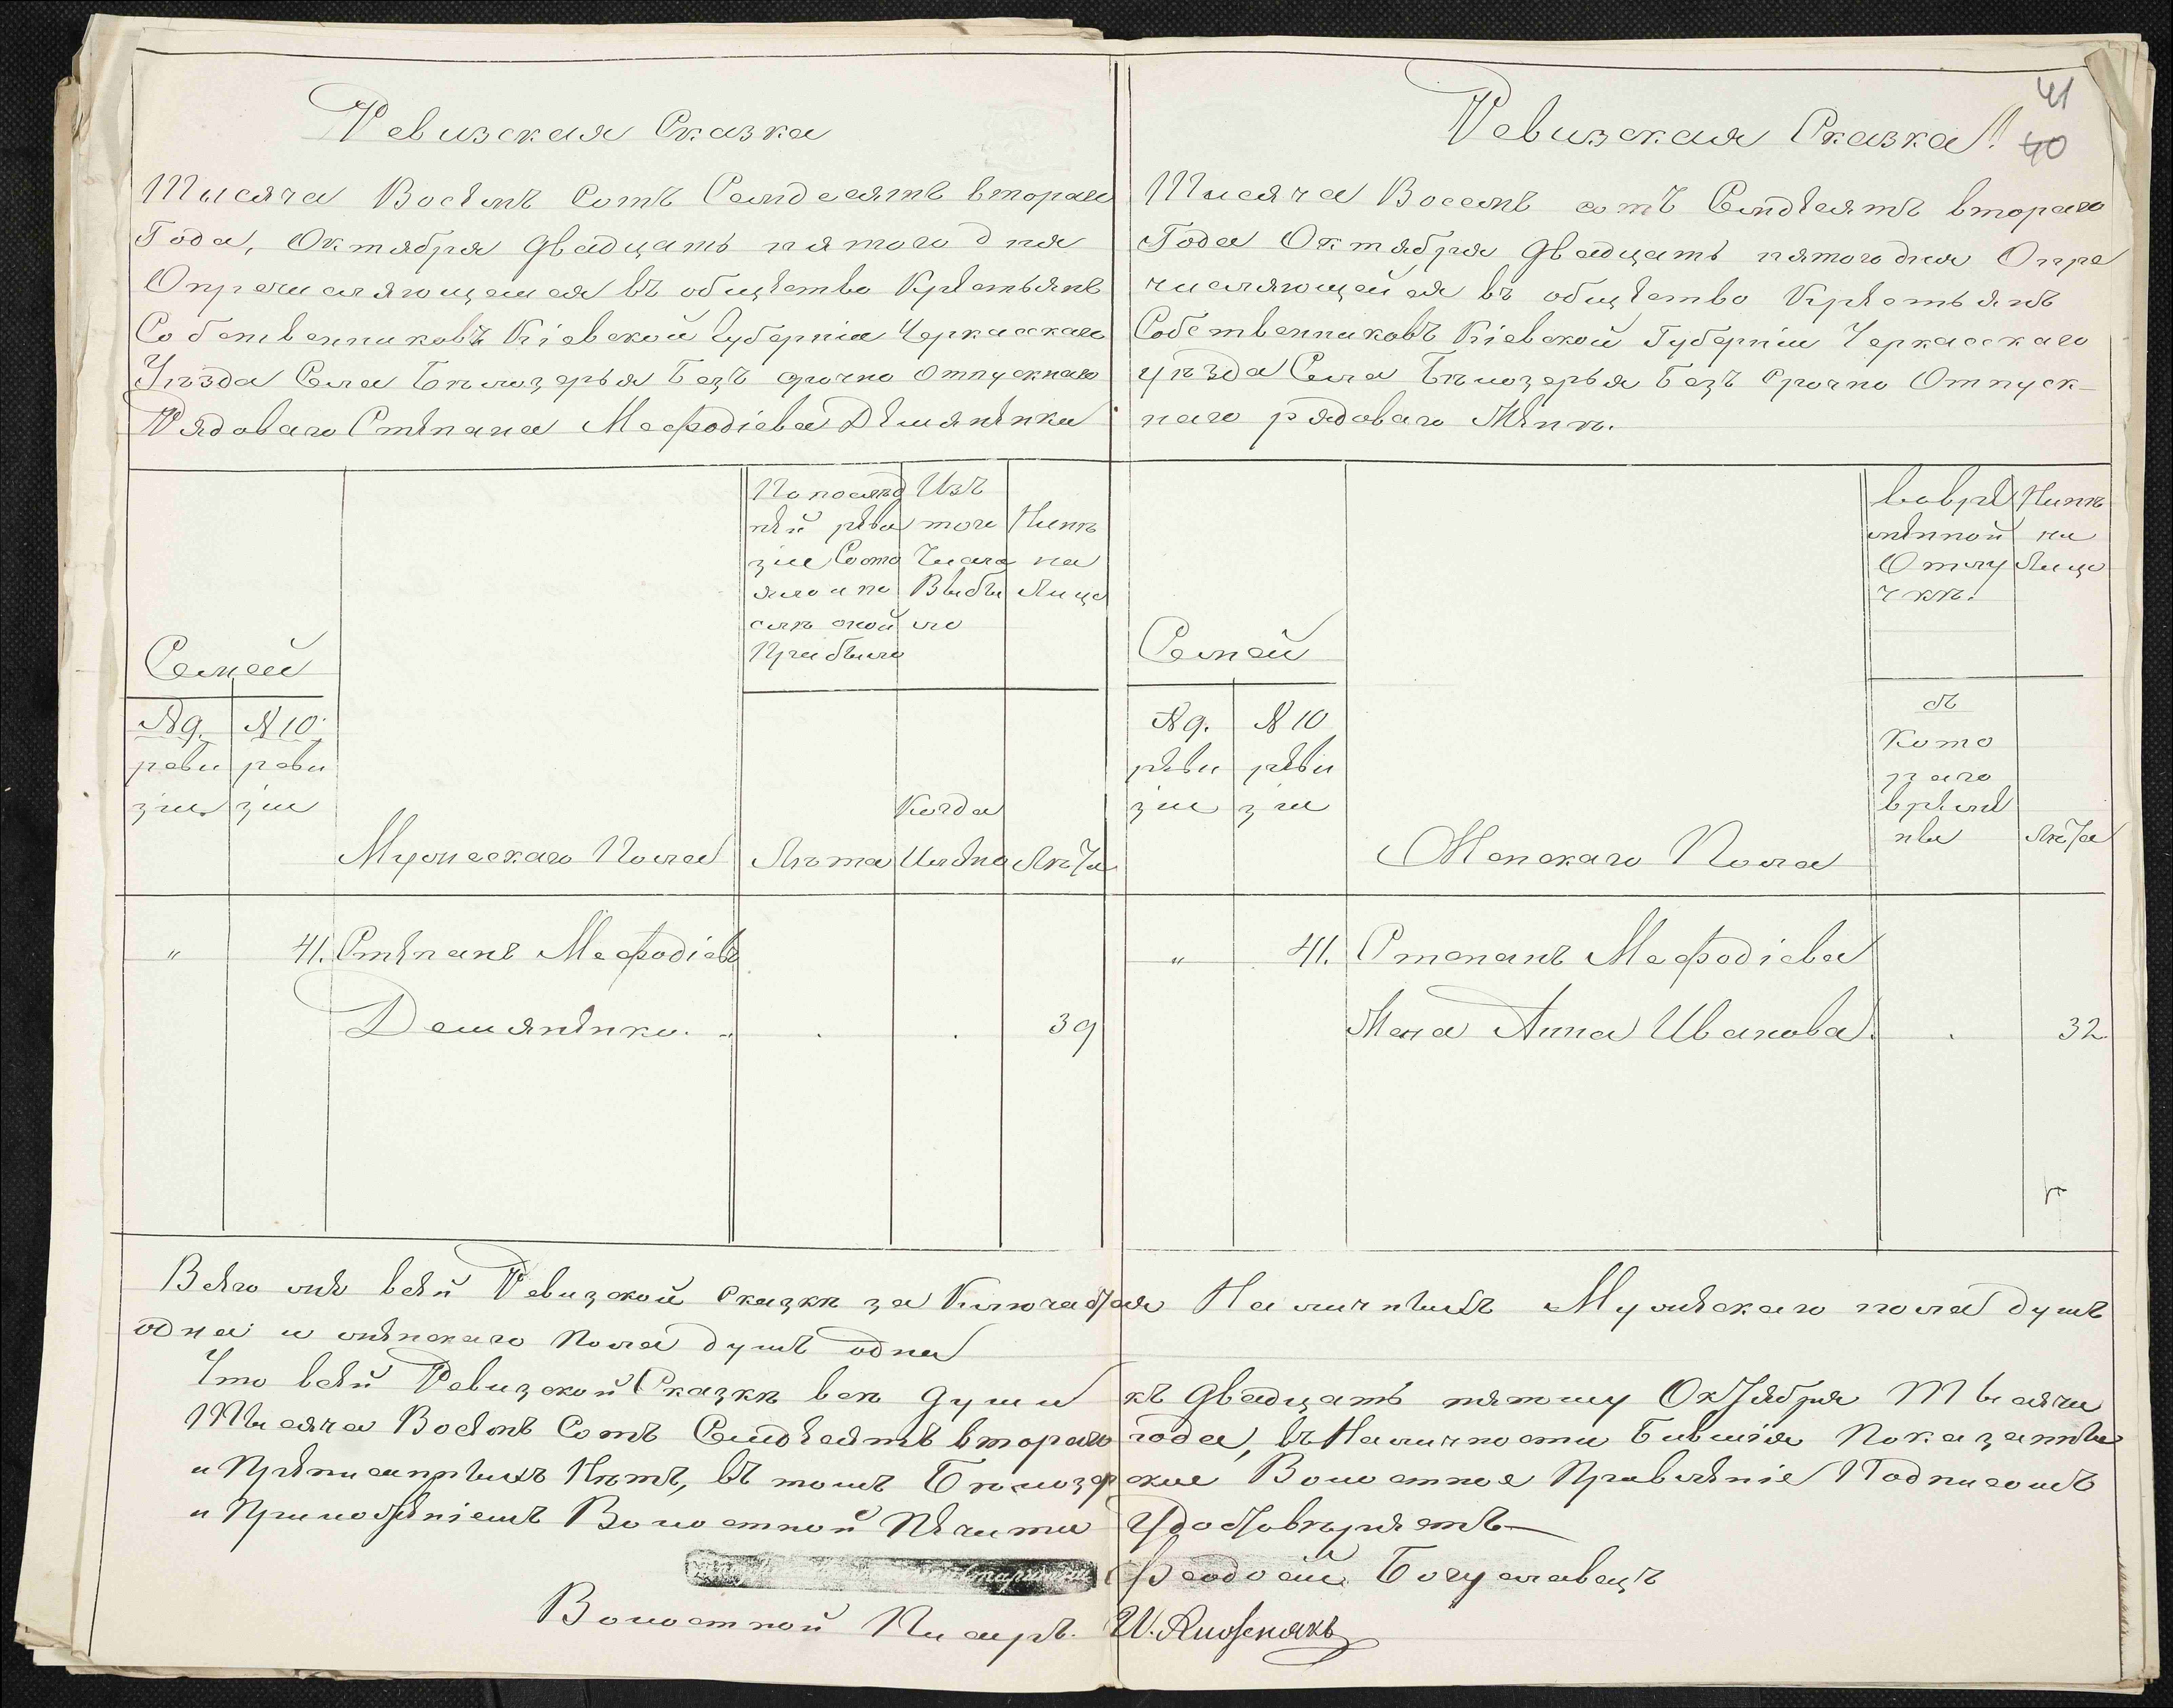 Ревизская Сказка
Тысяча Восемь Сотъ Семдесятъ втораго
Года, Октября двадцать пятого дня
Опречисляющемся въ общество Крестьянъ
Собственниковъ Кіевской Губерніи Черкасскаго
Уѣзда Села Бѣлозерья Безъ срочно отпускнаго
Рядоваго Степана Мефодіева Демяненка
Семей
№ 9. ревизіи
№ 10. ревизіи
Мужескаго Пола
По последней ревизіи Состояло и после оной Прибыло
Изъ того Числа Выбыло
Нинѣ на Лицо
Лѣта
Когда Именно
Лѣта
" 41. Степанъ Мефодіевъ
Демяненко. " . . 39
41
40
Ревизская Сказка!
Тысяча Восемь сотъ Семдесятъ втораго
Года Октября двадцать пятого дня Опре
числяющейся въ общество Крестьянъ
Собственниковъ Кіевской Губерніи Черкасскаго
уѣзда Села Бѣлозерья Безъ Срочно Отпуск-
наго рядоваго Женѣ.
Семей
№ 9. ревизіи
№ 10 ревизіи
Женскаго Пола
Вовременной Отлучкѣ.
Нинѣ на Лицо
съ Котораго времены
Лѣта
" 41. Степанъ Мефодіева
Жена Анна Иванова. . 32
Всего же всей Ревизской Сказкѣ заключается Наличныхъ Мужескаго пола душъ
одна и женскаго Пола душъ одна
Что всей Ревизской Сказкѣ всѣ души къ двадцать пятому Октября Тысячи
Тысяча Восемь Сотъ Семдесятъ втораго года, въ Наличности Бившія Показанны
и Прѣписанныхъ Нѣтъ, въ томъ Бѣлозерское Волостное Правленіе Подписомъ
и Приложеніемъ Волостной Печати Удостовѣряетъ
Феодосій Богуславецъ
Волостной Писарь. И.